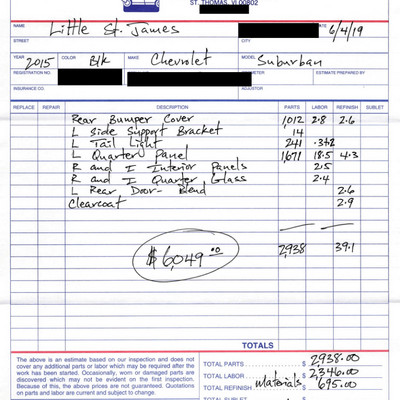 ST. THOMAS, VI 00802
NAME Little St. James 6/4/19
STREET CITY
YEAR 2015 COLOR Blk MAKE Chevrolet MODEL Suburban
REGISTRATION NO. SERIAL NO. ODOMETER ESTIMATE PREPARED BY
INSURANCE CO. ADJUSTOR
REPLACE REPAIR DESCRIPTION PARTS LABOR REFINISH SUBLET
Rear Bumper Cover 1,012 2.8 2.6
L Side Support Bracket 14
L Tail Light 241
L Quarter Panel 1,671 18.5 4.3
R and I Interior Panels 2.5
R and I Quarter Glass 2.4
L Rear Door-Blend 2.6
Clearcoat 2.9
2,938 39.1
$6,049.00
TOTALS
The above is an estimate based on our inspection and does not
cover any additional parts or labor which may be required after the
work has been started. Occasionally, worn or damaged parts are
discovered which may not be evident on the first inspection.
Because of this, the above prices are not guaranteed. Quotations
on parts and labor are current and subject to change.
TOTAL PARTS $ 2,938.00
TOTAL LABOR $ 2,346.00
TOTAL REFINISH Materials $ 695.00